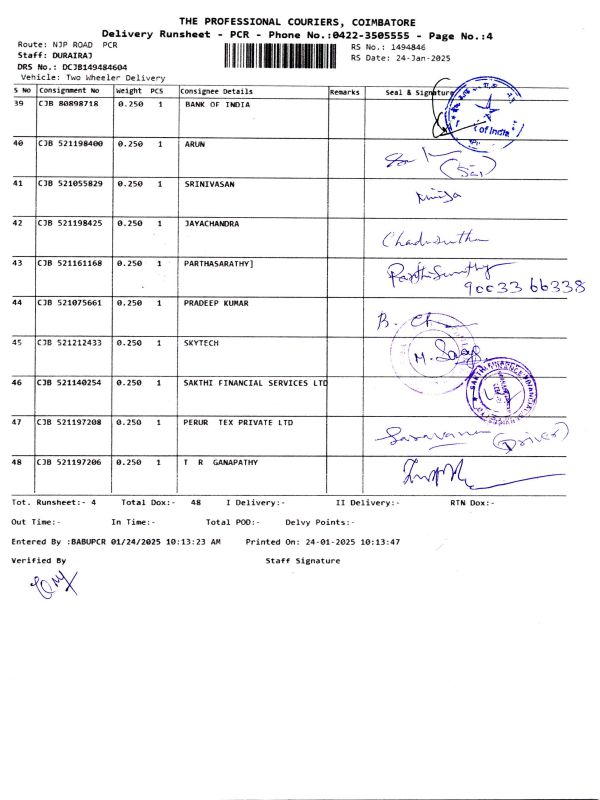 THE PROFESSIONAL COURIERS, COIMBATORE
Delivery Runsheet - PCR - Phone No.:0422-3505555 - Page No.:4
Route: NJP ROAD PCR RS No.: 1494846
Staff: DURAIRAJ RS Date: 24-Jan-2025
DRS No.: DCJB149484604
Vehicle: Two Wheeler Delivery
S No Consignment No Weight PCS Consignee Details Remarks Seal & Signature
39 CJB 80898718 0.250 1 BANK OF INDIA
of India
40 CJB 521198400 0.250 1 ARUN
(Sai)
41 CJB 521055829 0.250 1 SRINIVASAN
42 CJB 521198425 0.250 1 JAYACHANDRA
43 CJB 521161168 0.250 1 PARTHASARATHY]
90033 66338
44 CJB 521075661 0.250 1 PRADEEP KUMAR
45 CJB 521212433 0.250 1 SKYTECH
46 CJB 521140254 0.250 1 SAKTHI FINANCIAL SERVICES LTD
47 CJB 521197208 0.250 1 PERUR TEX PRIVATE LTD
Saravanan (Driver)
48 CJB 521197206 0.250 1 T R GANAPATHY
Tot. Runsheet:- 4 Total Dox:- 48 I Delivery:- II Delivery:- RTN Dox:-
Out Time:- In Time:- Total POD:- Delvy Points:-
Entered By :BABUPCR 01/24/2025 10:13:23 AM Printed On: 24-01-2025 10:13:47
Verified By Staff Signature